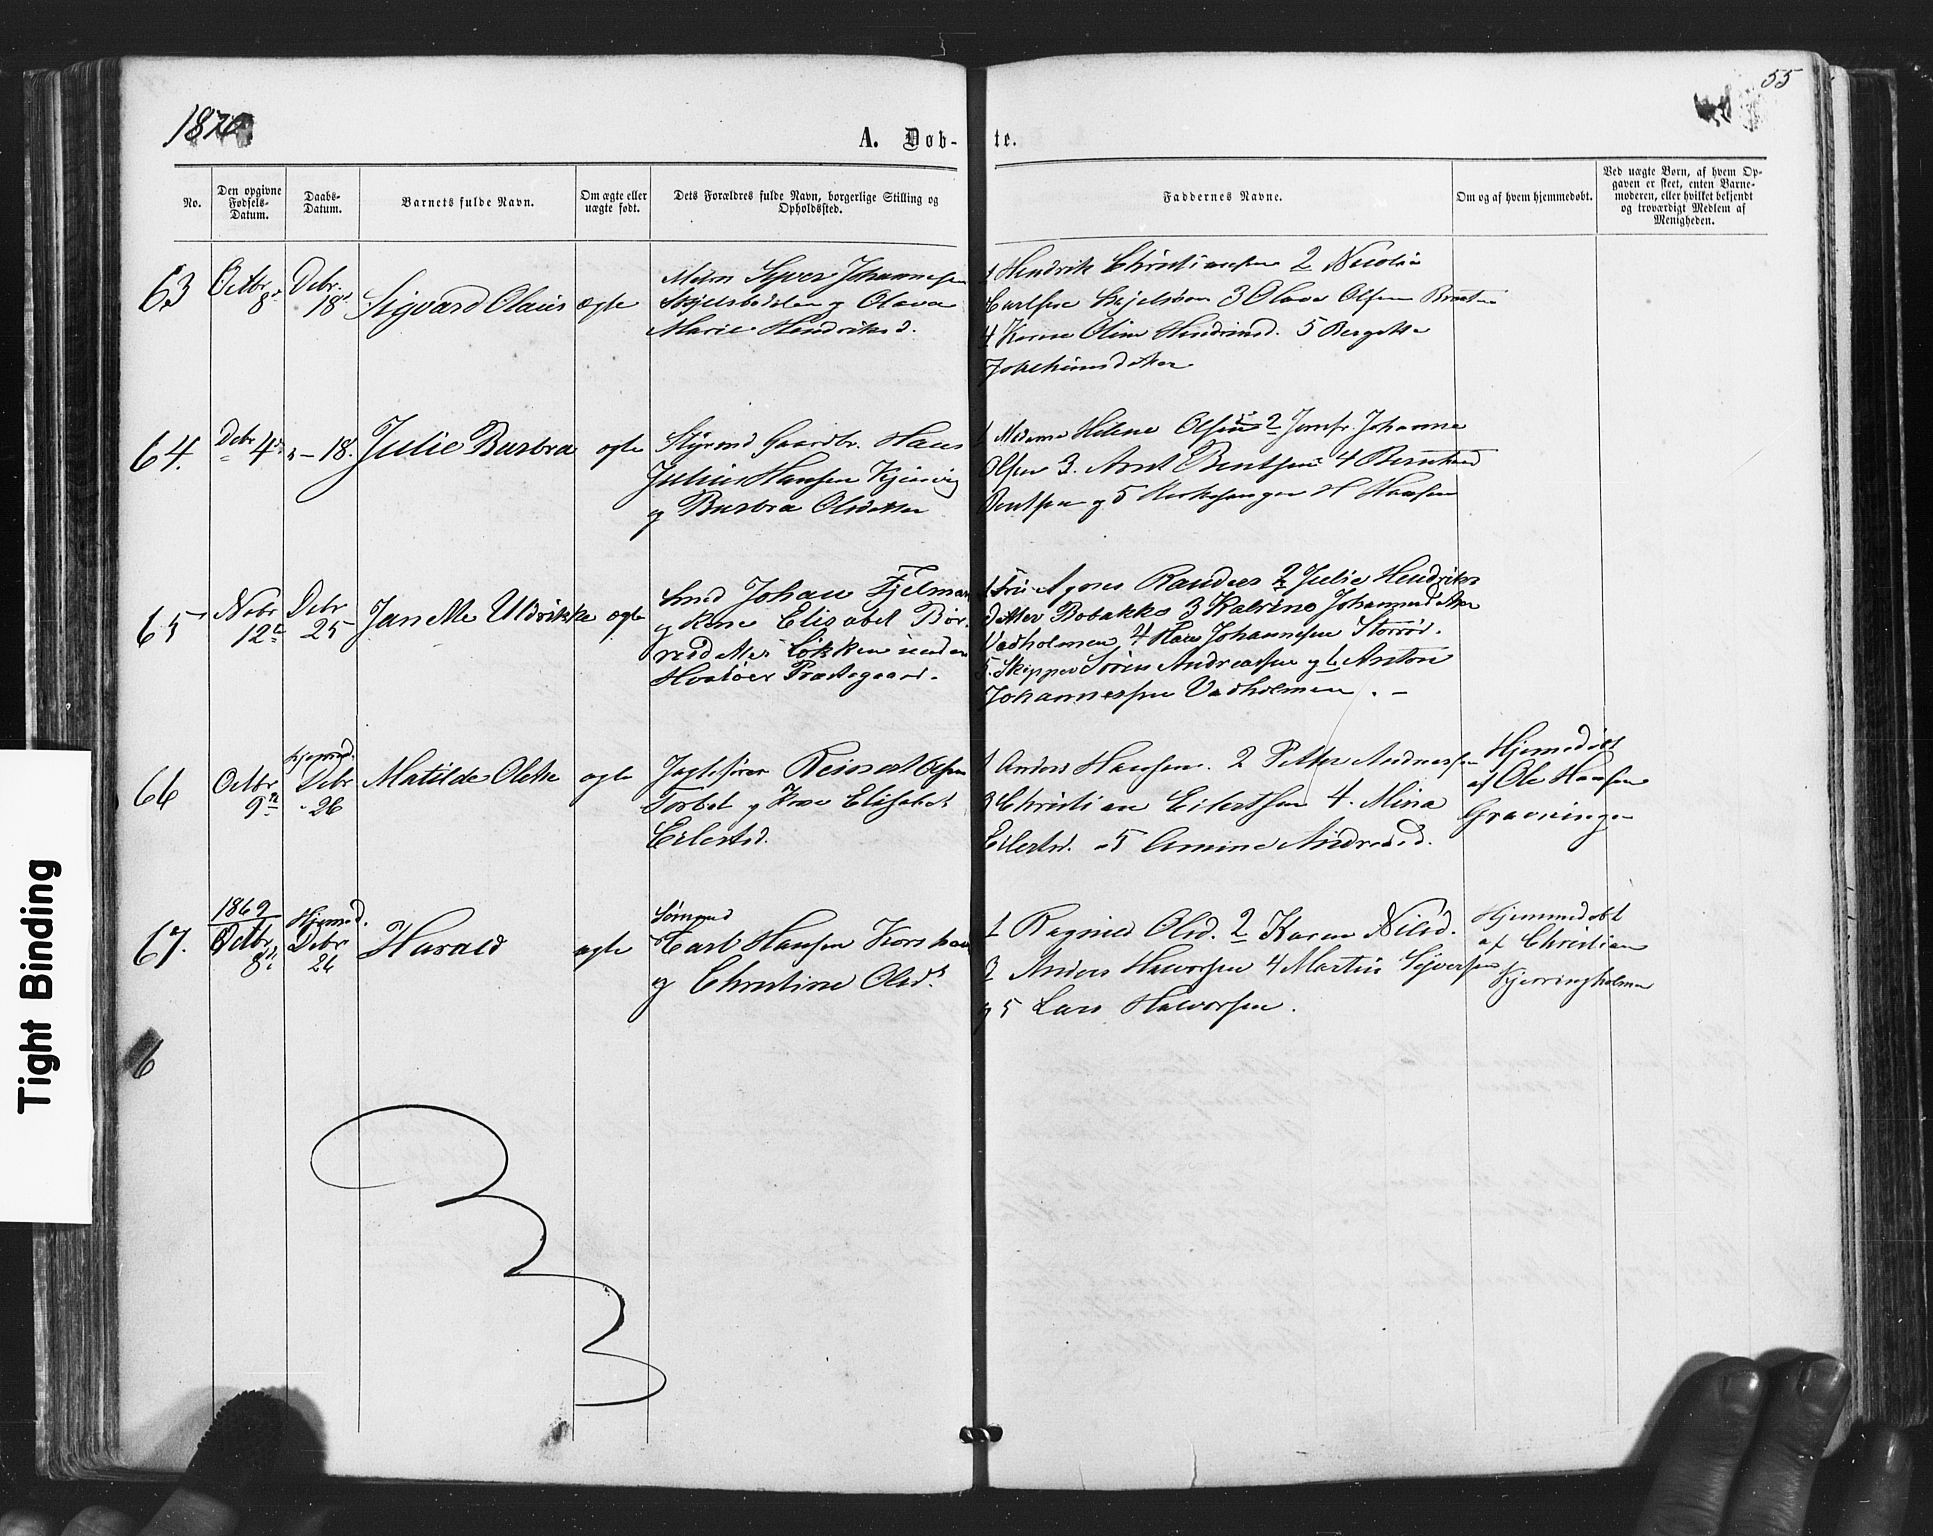 55
1870
A. Døb-te.
No.
Den opgivne Fødsels-Datum.
Daabs-Datum.
Barnets fulde Navn.
Om ægte eller uægte født.
Dets Forældres fulde Navn, borgerlige Stilling og Opholdssted.
Faddernes Navne.
Om og af hvem hjemmedøbt.
Ved uægte Børn, af hvem Opgaven er skeet, enten Barnemoderen, eller hvilket bekjendt og troværdigt Medlem af Menigheden.
63
Octbr 8
Debr. 18
Sigvard Olaus
ægte
Syver Johannesen
og Olava
Marie Hendriksd.
1 Hendrik Christiansen 2 Nicolai
Carlsen 3 Olava Olsen
4 Karen Oline 5 Bergette
64.
Debr 4
" – 18.
Julie Barbra
ægte
Styrmd Gaardbr. Hans
Julius Hansen
og Barbra Olsdatter
1 Madame Helene Olsen 2 Jomfr. Johanne
Olsen 3. Arnt Bentsen 4 Berntine
Bentsen og 5 Kirkesanger H Hansen
65
Nobr 12
Debr 25
Janette Uldrikke
ægte
Smed Johan Fjelman
og Kone Elisabet Bør-
resdatter Løkken under
Hvaløer Præstegaard.
1 Agnes Randers 2 Julie Hendriks
datter Bobakke 3 Katrine Johannesdatter
Vadholmen 4 Hans Johannesen Storrød.
5. Skipper Søren Andreassen og 6 Anton
Johannessen Vadholmen. –
66
Octbr 9
Debr 26
Matilde Olette
ægte
Jagtefører Reinert Olsen
og Kone Elisabet
Eilertsd.
1 Anders Hansen. 2 Petter Andreassen
3 Christian Eilertsen 4. Mina
Eilertsd. 5 Amine Andreasd.
Hjemmedøbt
af Ole Hansen
Gravningen
67.
1869
Octbr 8
Hjemmed.
Debr 26
Harald
ægte
Sømand
Carl Hansen Korshavn
og Christine Olsd.
1 Ragnild Olsd. 2 Karen Nilsd.
3 Anders Halvorsen 4 Martin Syversen
og 5 Lars Halvorsen.
Hjemmedøbt
af Christian
Kjerringholmen
6
Tight Binding